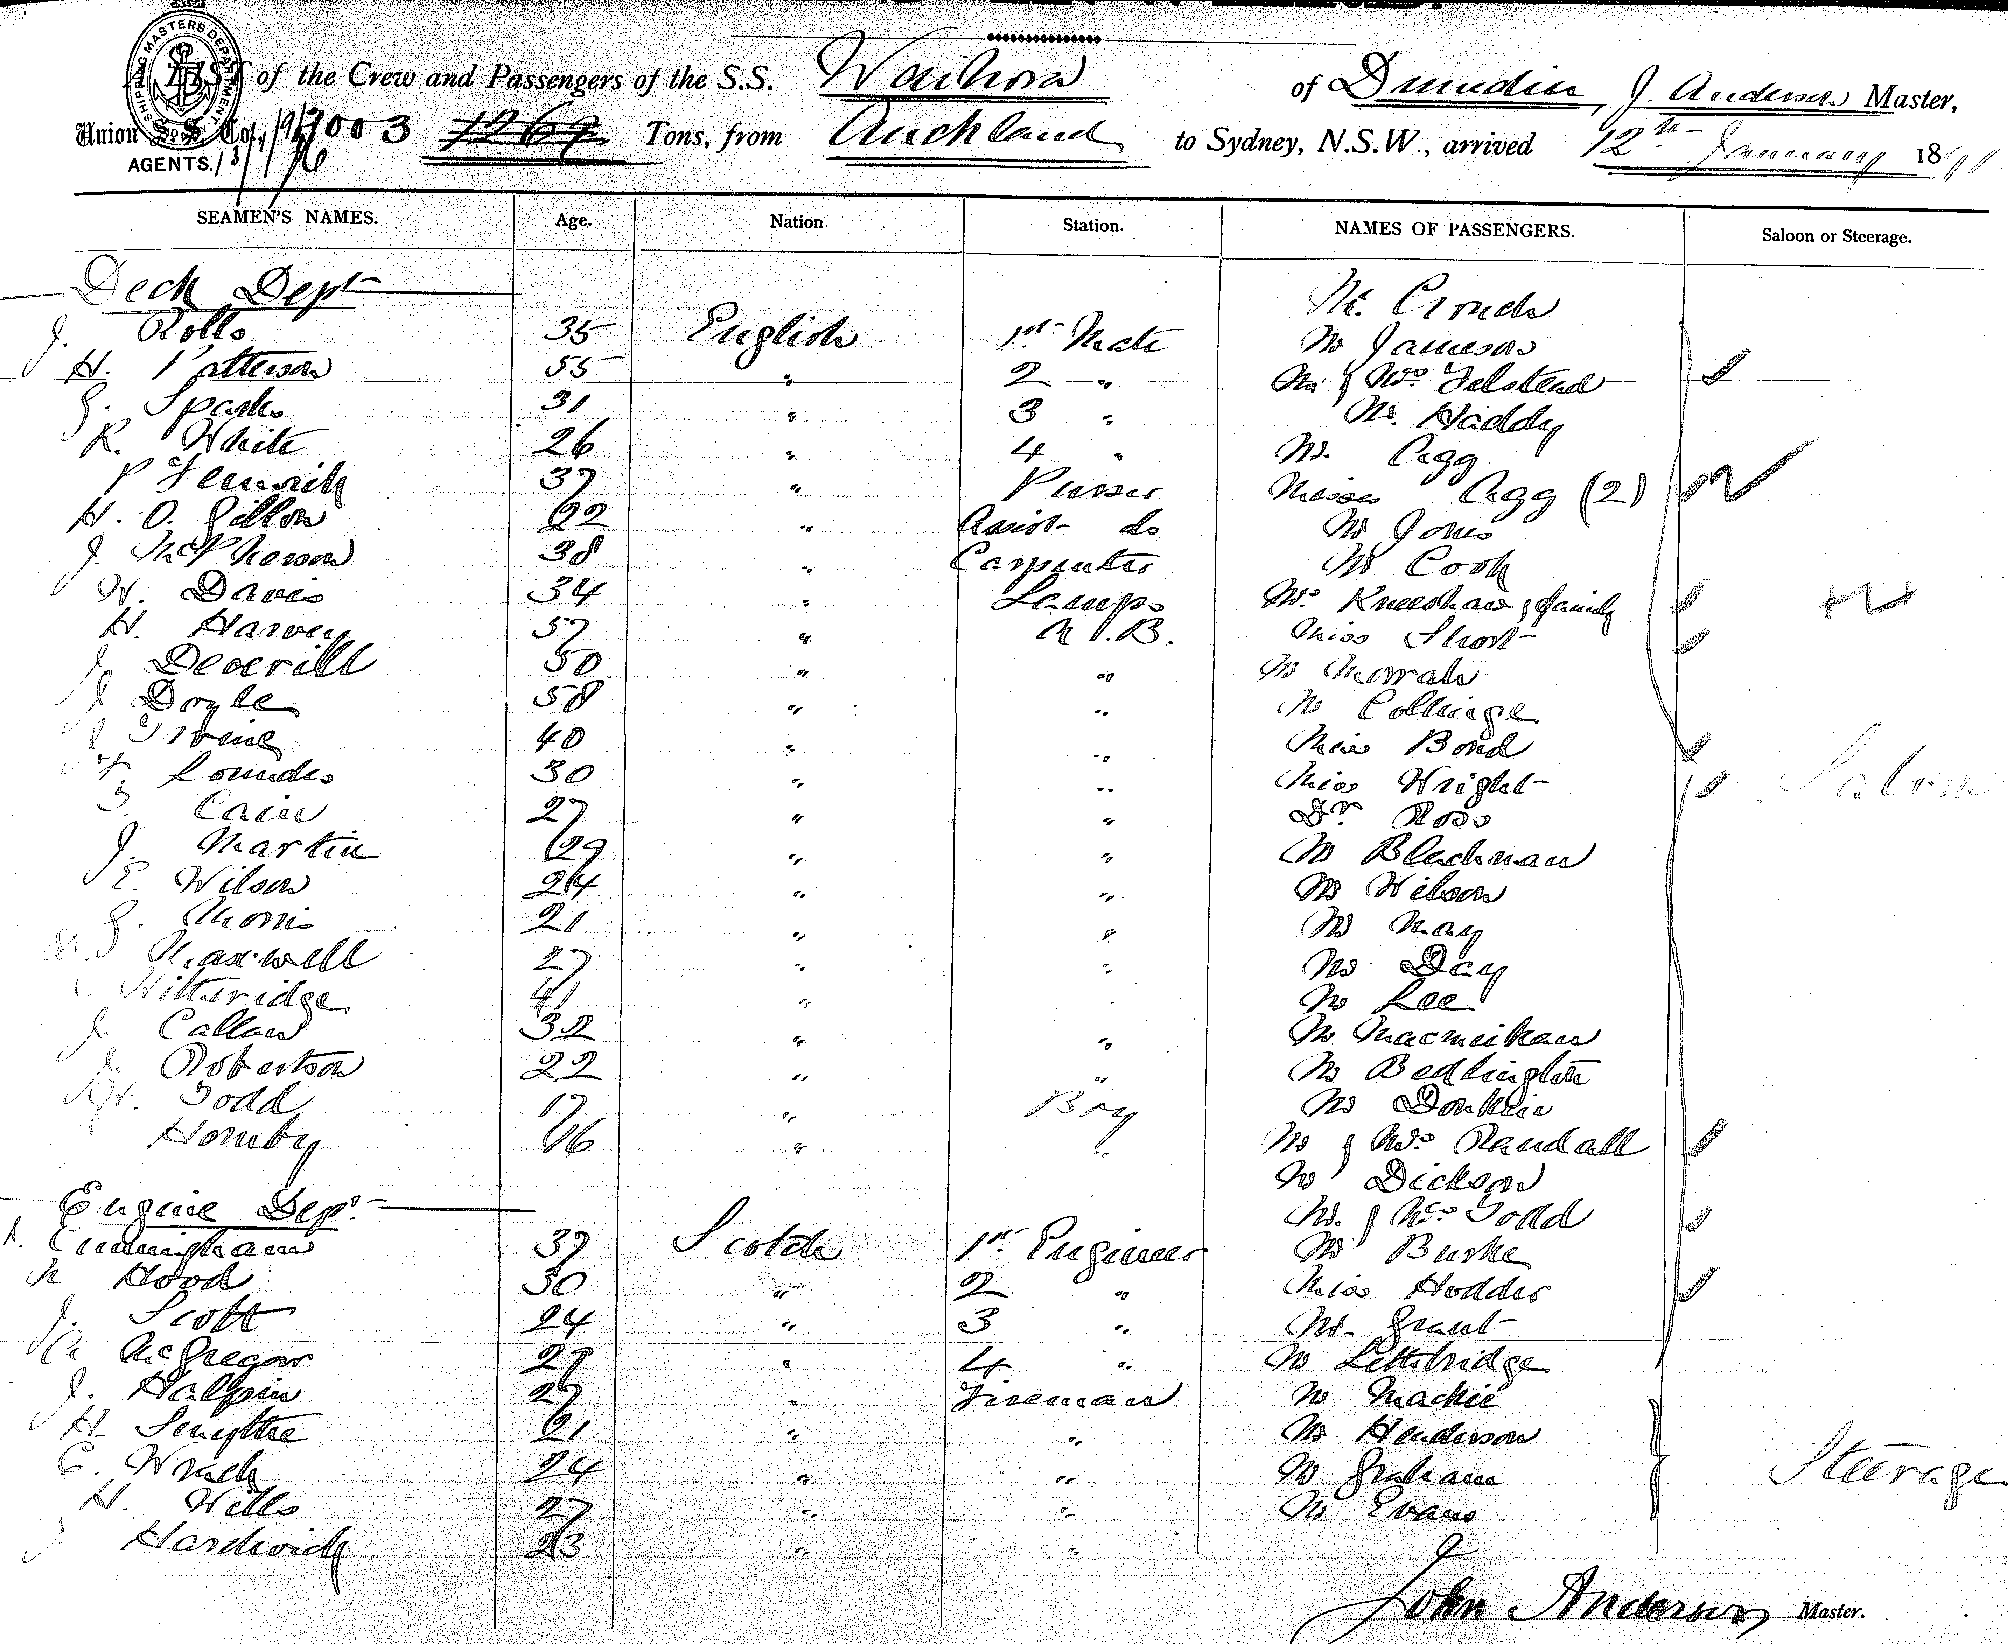 SHIPPING MASTERS DEPARTMENT
LIST of the Crew and Passengers of the S.S. Waihora of Dunedin, J. Anderson Master,
Union S. S. Co., 2003 1269 Tons, from Auckland to Sydney, N.S.W., arrived 12th January 18
AGENTS.
SEAMEN'S NAMES. Age. Nation Station. NAMES OF PASSENGERS. Saloon or Steerage.
Deck Dept Mr. Crouch
J. Rolls 35 English 1st Mate Mr Jameson
H. Patterson 55 " 2 " Mr & Mrs Felstead
G. Sparks 31 " 3 " Mr. Haddy
R. White 26 " 4 " Mr. Agg
P Fenwick 37 " Purser Misses Agg (2)
H. O. Gillon 22 " Assist do Mr Jones
J. McPherson 38 " Carpenter Mr Cook
W. Davis 34 " Lamps Mrs Kneeshaw & family
H. Harvey 57 " A.B. Miss Short
J. Deverill 50 " " Mr Morrah
J Doyle 58 " " Mr Collinge
J Irvine 40 " " Miss Bond
Lowndes 30 " " Miss Wright Saloon
Cain 27 " " Dr. Ross
J. Martin 29 " " Mr Blackman
E. Wilson 24 " " Mr Wilson
G. Morris 21 " " Mr May
Maxwell 27 " " Mr Day
Kitteridge 41 " Mr Lee
J. Callan 32 " " Mr Macmeikan
Robertson 22 " " Mr Bedlington
Todd 17 " Boy Mr Donkin
Hornby 16 " " Mr & Mrs Randall
Mr Dickson
Engine Dept. Mr. & Mrs Todd
Cunningham 37 Scotch 1st Engineer Mr Burke
Hood 30 " 2 " Miss Hodder
J. Scott 24 " 3 " Mr. Grant
A McGregor 27 " 4 " Mr Lethbridge
J. Halpin 27 " Fireman Mr Mackie
H. Smythe 21 " " Mr Henderson
C. 24 " " Mr Graham Steerage
H. Wills 27 " " Mr Evans
Hardwick 23 " "
John Anderson Master.